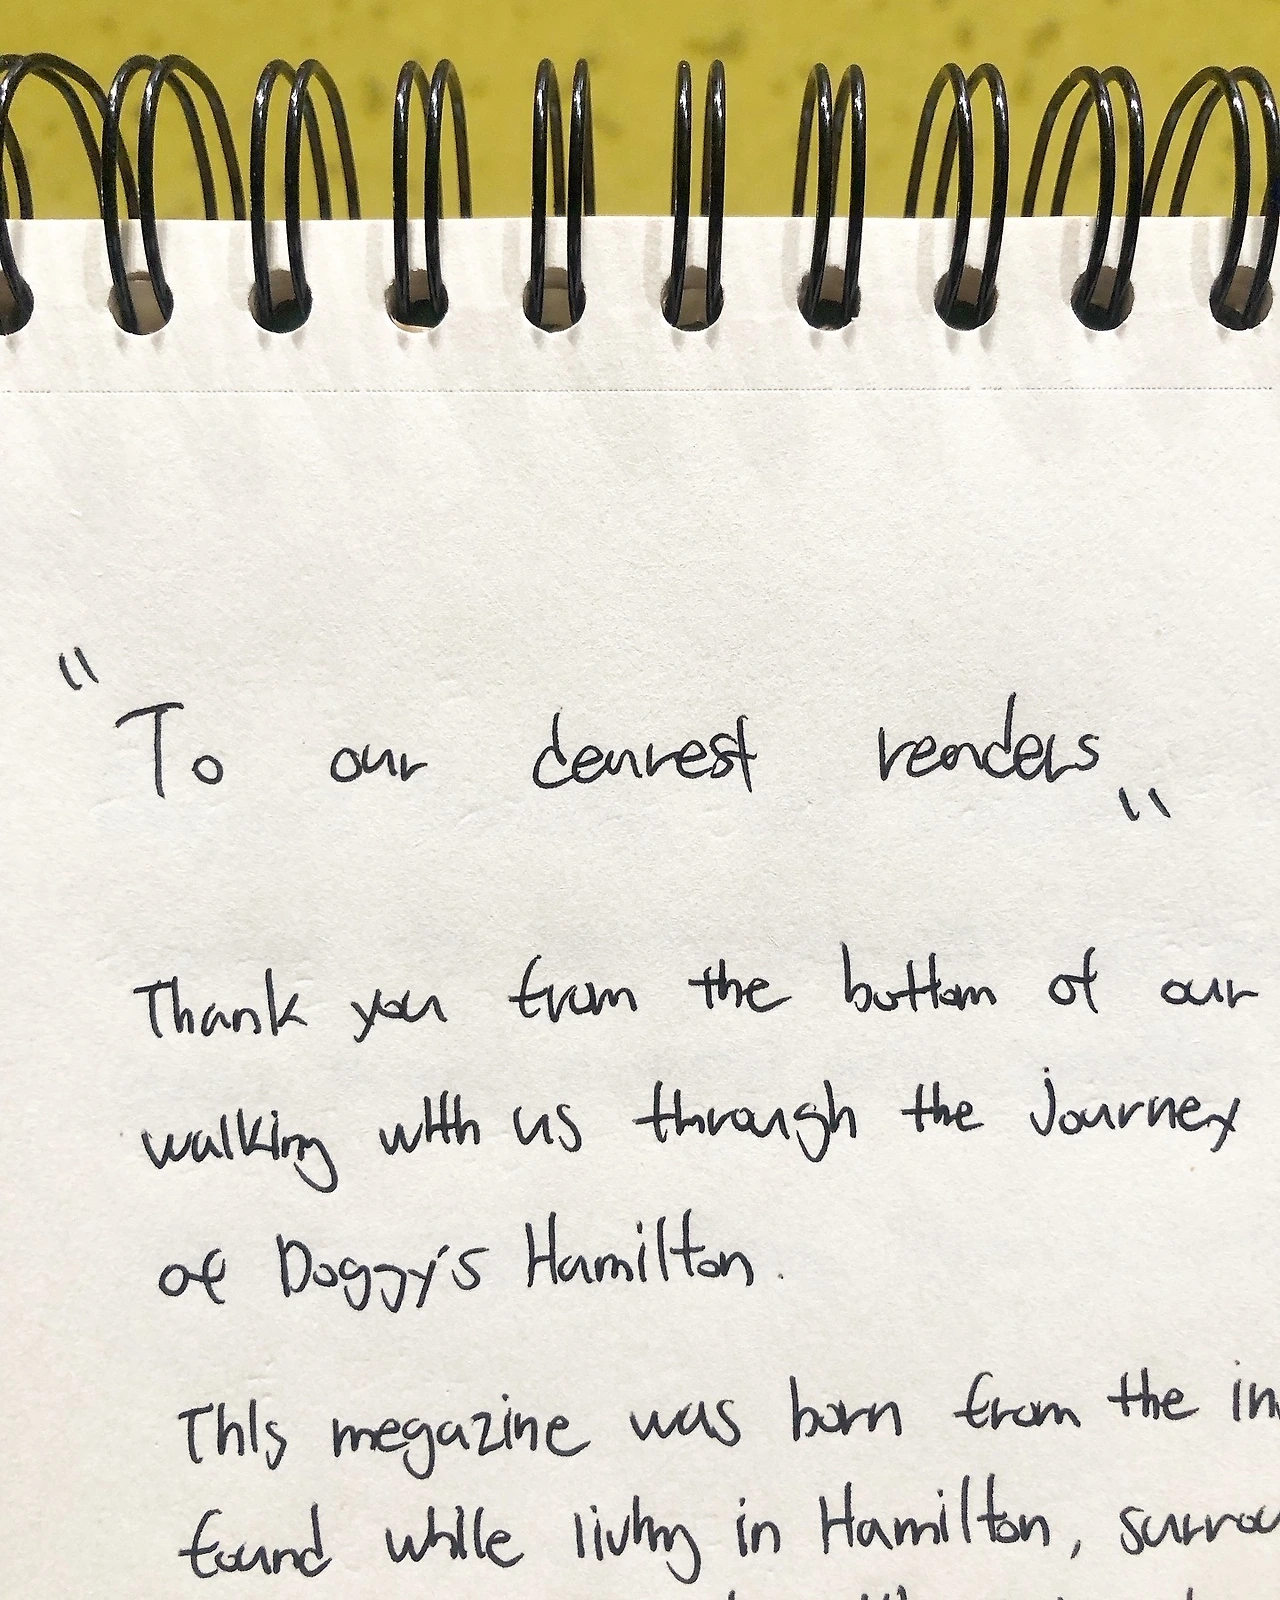 "To our dearest readers"
Thank you from the bottom of our
walking with us through the journey
of Doggy's Hamilton.
This megazine was born from the
found while living in Hamilton,